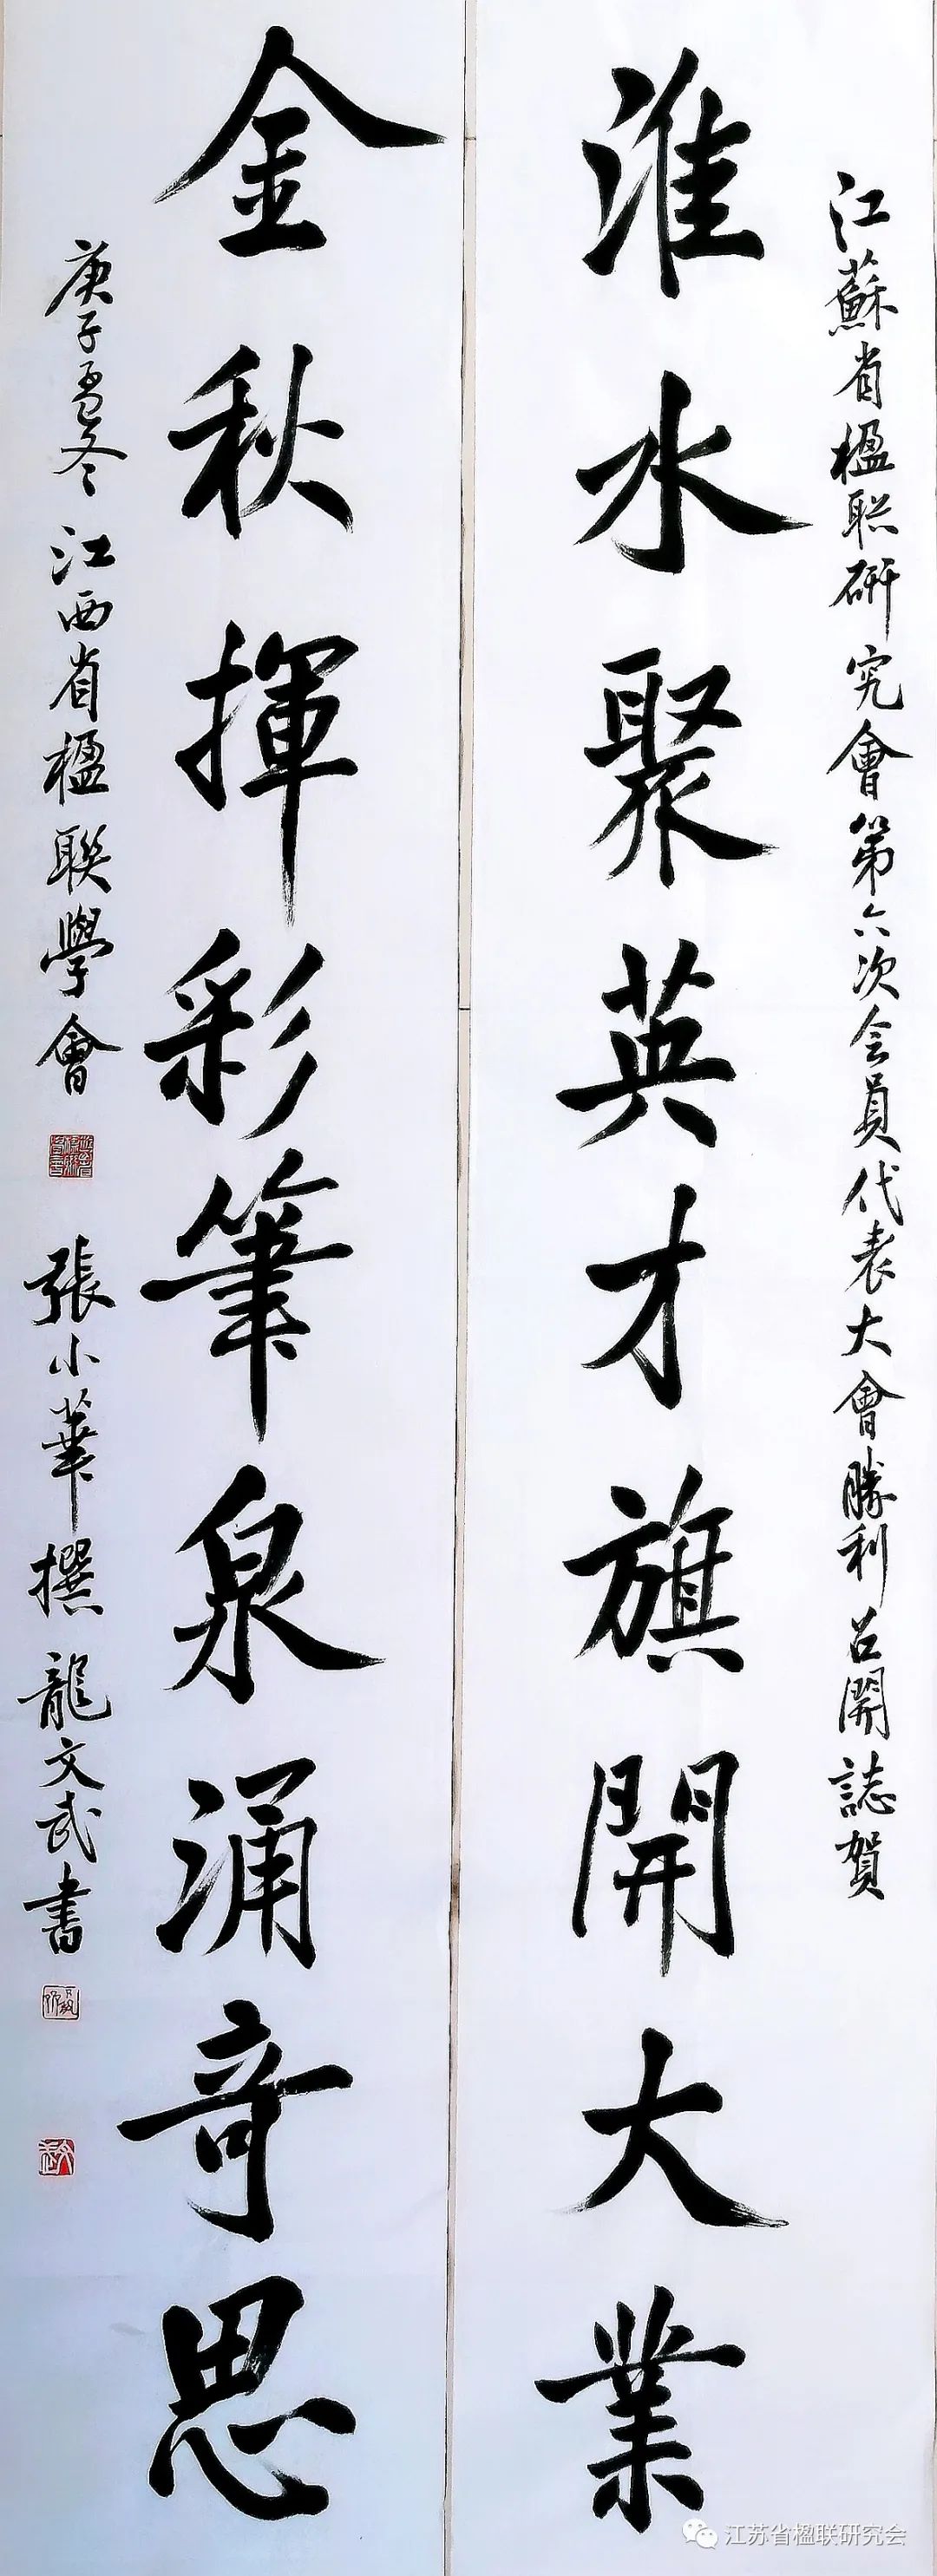 江蘇省楹聯研究會第六次会員代表大會勝利召開誌賀
淮水聚英才旗開大業
金秋揮彩筆泉涌奇思
庚子孟冬江西省楹聯學會
張小華撰龍文武書
江苏省楹联研究会